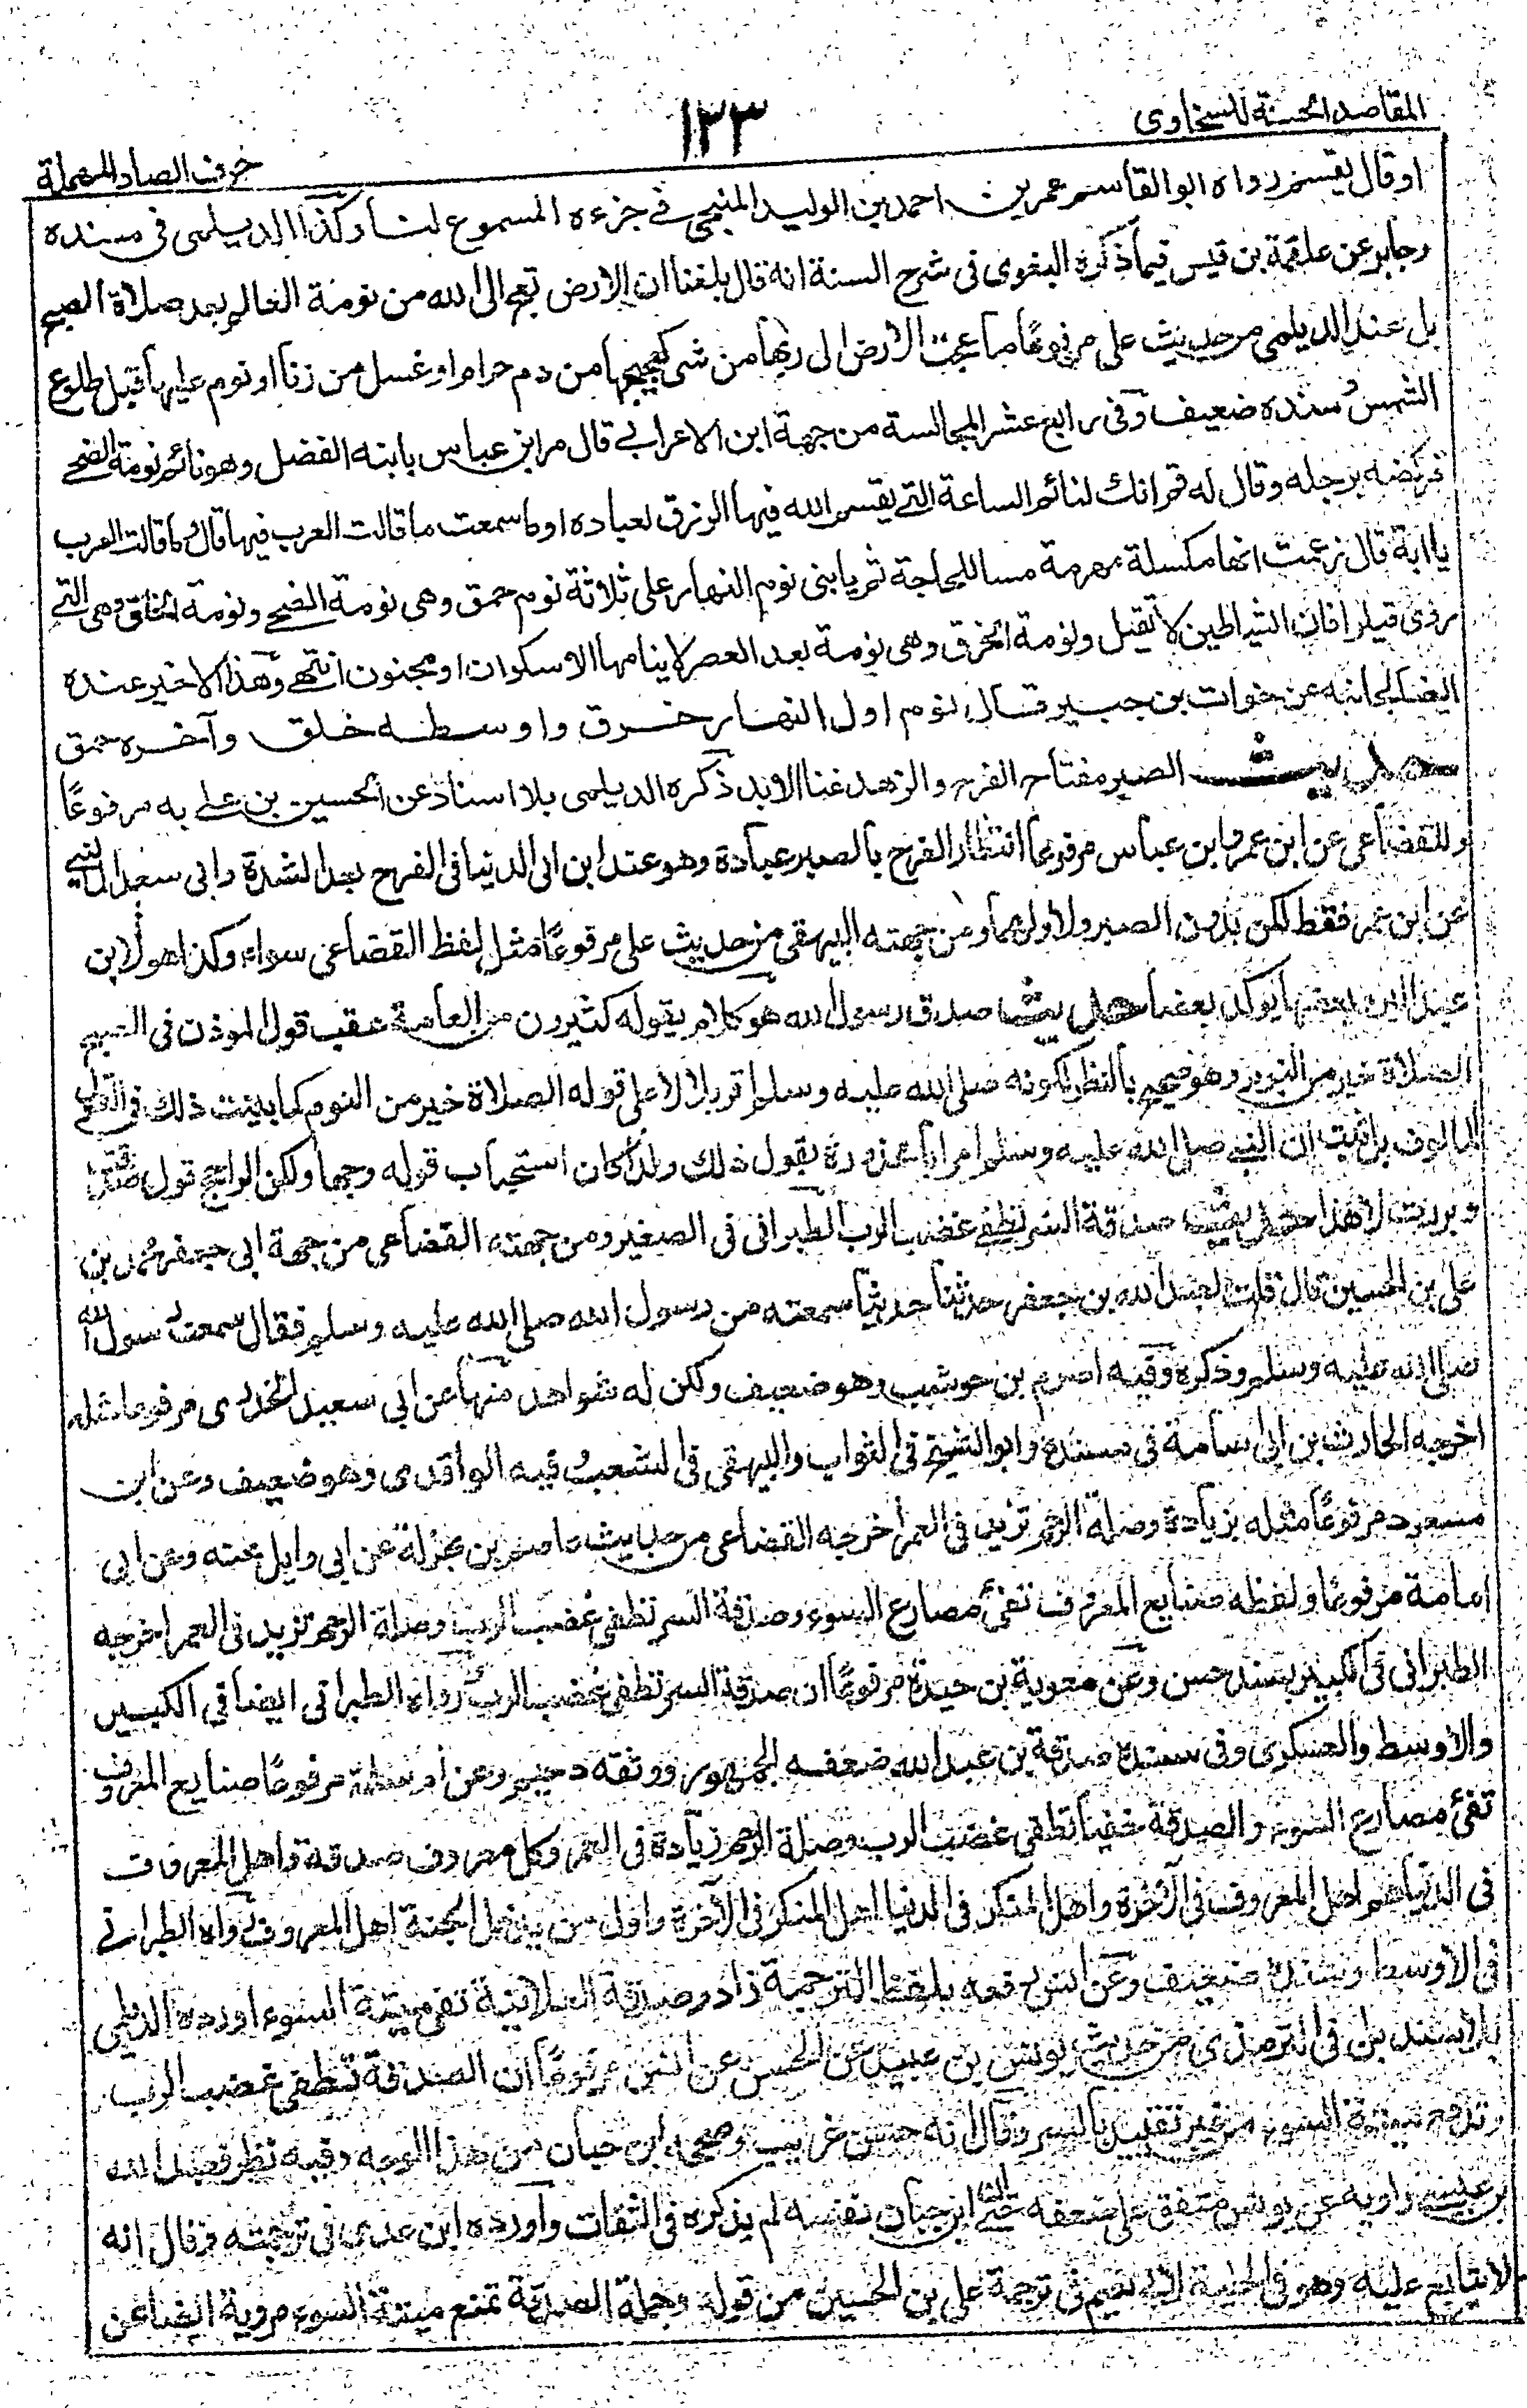 المقاصد الحسنة للسخاوى
١٢٣
حرف الصاد المهملة
او قال يقسم رواه ابو القاسم عمر بن احمد بن الوليد المنبجى فى جزءه المسموع لنا وكذا الديلمى فى مسنده
وجابر عن علقمة بن قيس فيما ذكره البغوى فى شرح السنة انه قال بلغنا ان الارض تعج الى الله من نومة العالم بعد صلاة الصبح
بل عند الديلمى من حديث على مرفوعًا ما عجت الارض الى ربها من شى كعجيجها من دم حرام او غسل من زنا او نوم عليها قبل طلوع
الشمس وسنده ضعيف وفى رابع عشر المجالسة من جهة ابن الاعرابى قال مر ابن عباس بابنه الفضل وهو نائم نومة الضحى
فركضه برجله وقال له قم انك لنائم الساعة التى يقسم الله فيها الرزق لعباده او ما سمعت ما قالت العرب فيها قال وما قالت العرب
يا ابة قال زعمت انها مكسلة مهرمة منساة للحاجة ثم يا بنى نوم النهار على ثلاثة نوم حمق وهى نومة الضحى ونومة الخلق وهى التى
روى قيلوا فان الشياطين لا تقيل ونومة الخرق وهى نومة بعد العصر لا ينامها الا سكران او مجنون انتهى وهذا الاخير عنده
ايضا عن خوات بن جبير قال نوم اول النهار خرق واوسطه خلق وآخره حمق
حديث الصبر مفتاح الفرج والزهد غنا الابد ذكره الديلمى بلا اسناد عن الحسين بن على به مرفوعًا
وللقضاعى عن ابن عمر وابن عباس مرفوعًا انتظار الفرج بالصبر عبادة وهو عند ابن ابى الدنيا فى الفرج بعد الشدة وابى سعد المالينى
عن ابن عمر فقط لكن بدون الصبر ولاولهما ومن جهته البيهقى من حديث على مرفوعًا مثل لفظ القضاعى سواء وكذا هو لابن
عبد البر وبعضها يوكد بعضا حديث صدق رسول الله هو كلام يقوله كثيرون من العامة عقب قول الموذن فى الصبح
الصلاة خير من النوم وهو صحيح بالنظر لكونه صلى الله عليه وسلم اقر بلالا على قوله الصلاة خير من النوم كما بينت ذلك فى القول
المالوف بل ثبت ان النبى صلى الله عليه وسلم امر ابا محذورة بقول ذلك ولذا كان استحباب قوله وجها ولكن الراجح قول صدقت
وبررت لا هذا حديث صدقة السر تطفى غضب الرب الطبرانى فى الصغير ومن جهته القضاعى من جهة ابى جعفر محمد بن
على بن الحسين قال قلت لعبد الله بن جعفر حدثنا حديثا سمعته من رسول الله صلى الله عليه وسلم فقال سمعت رسول الله
صلى الله عليه وسلم وذكره وفيه اصرم بن حوشب وهو ضعيف ولكن له شواهد منها عن ابى سعيد الخدرى مرفوعا مثله
اخرجه الحارث بن ابى اسامة فى مسنده وابو الشيخ فى الثواب والبيهقى فى الشعب وفيه الواقدى وهو ضعيف وعن ابن
مسعود مرفوعًا مثله بزيادة وصلة الرحم تزيد فى العمر اخرجه القضاعى من حديث عاصم بن بهدلة عن ابى وايل عنه وعن ابى
امامة مرفوعًا ولفظه صنايع المعروف تقى مصارع السوء وصدقة السر تطفى غضب الرب وصلة الرحم تزيد فى العمر اخرجه
الطبرانى فى الكبير بسند حسن وعن معوية بن حيدة مرفوعًا ان صدقة السر تطفى غضب الرب رواه الطبرانى ايضا فى الكبير
والاوسط والعسكرى وفى سنده صدقة بن عبد الله ضعفه الجمهور ووثقه دحيم وعن ام سلمة مرفوعًا صنايع المعروف
تقى مصارع السوء والصدقة خفيا تطفى غضب الرب وصلة الرحم زيادة فى العمر وكل معروف صدقة واهل المعروف
فى الدنيا هم اهل المعروف فى الآخرة واهل المنكر فى الدنيا اهل المنكر فى الآخرة واول من يدخل الجنة اهل المعروف رواه الطبرانى
فى الاوسط وسنده ضعيف وعن انس رفعه بلفظ الترجمة زاد وصدقة العلانية تقى ميتة السوء اورده الديلمى
بلا سند بل فى الترمذى من حديث يونس بن عبيد عن الحسن عن انس مرفوعًا ان الصدقة تطفى غضب الرب
وتدفع ميتة السوء من غير تقييد بالسر وقال انه حسن غريب وصححه ابن حبان من هذا الوجه وفيه نظر فعبد الله
بن عيسى راويه عن يونس متفق على ضعفه حتى ابن حبان نفسه لم يذكره فى الثقات وآورده ابن عدى فى ترجمته وقال انه
لا يتابع عليه وهو فى الحلية لابى نعيم فى ترجمة على بن الحسين من قوله وجملة الصدقة تمنع ميتة السوء مروية ايضا عن